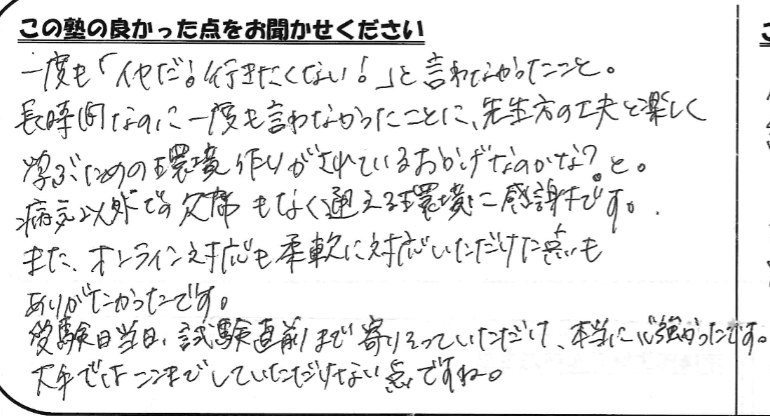 この塾の良かった点をお聞かせください
一度も「イヤだ！行きたくない！」と言わなかったこと。
長時間なのに一度も言わなかったことに、先生方の工夫と楽しく
学ぶための環境作りがされているおかげなのかな？と。
病気以外での欠席もなく通える環境に感謝です。
また、オンライン対応も柔軟に対応いただけた点も
ありがたかったです。
受験日当日、試験直前まで寄りそっていただけ、本当に心強かったです。
大手ではここまでしていただけない点ですね。